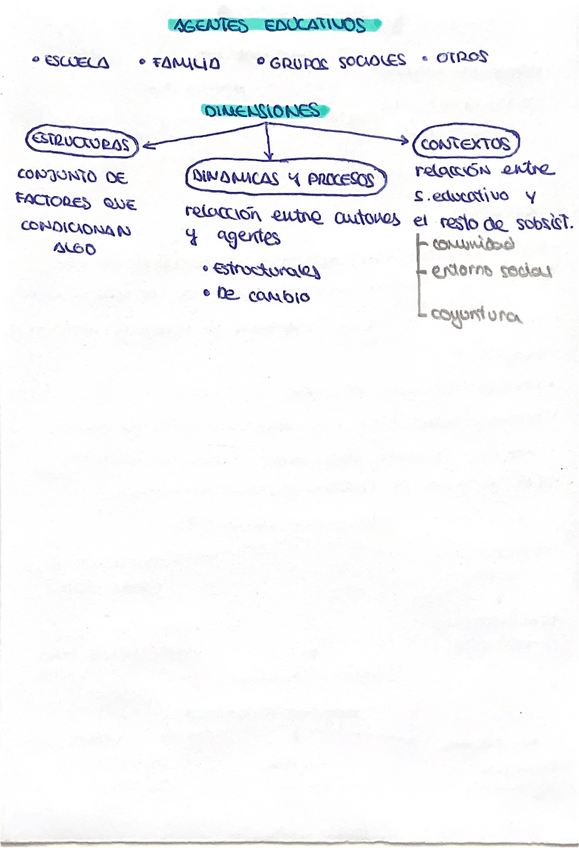 AGENTES EDUCATIVOS
• ESCUELA • FAMILIA • GRUPOS SOCIALES • OTROS
DIMENSIONES
ESTRUCTURAS
CONJUNTO DE
FACTORES QUE
CONDICIONAN
ALGO
DINAMICAS Y PROCESOS
relacción entre autores
y agentes
• Estructurales
• De cambio
CONTEXTOS
relacción entre
s.educativo y
el resto de sobsist.
comunidad
entorno social
coyuntura